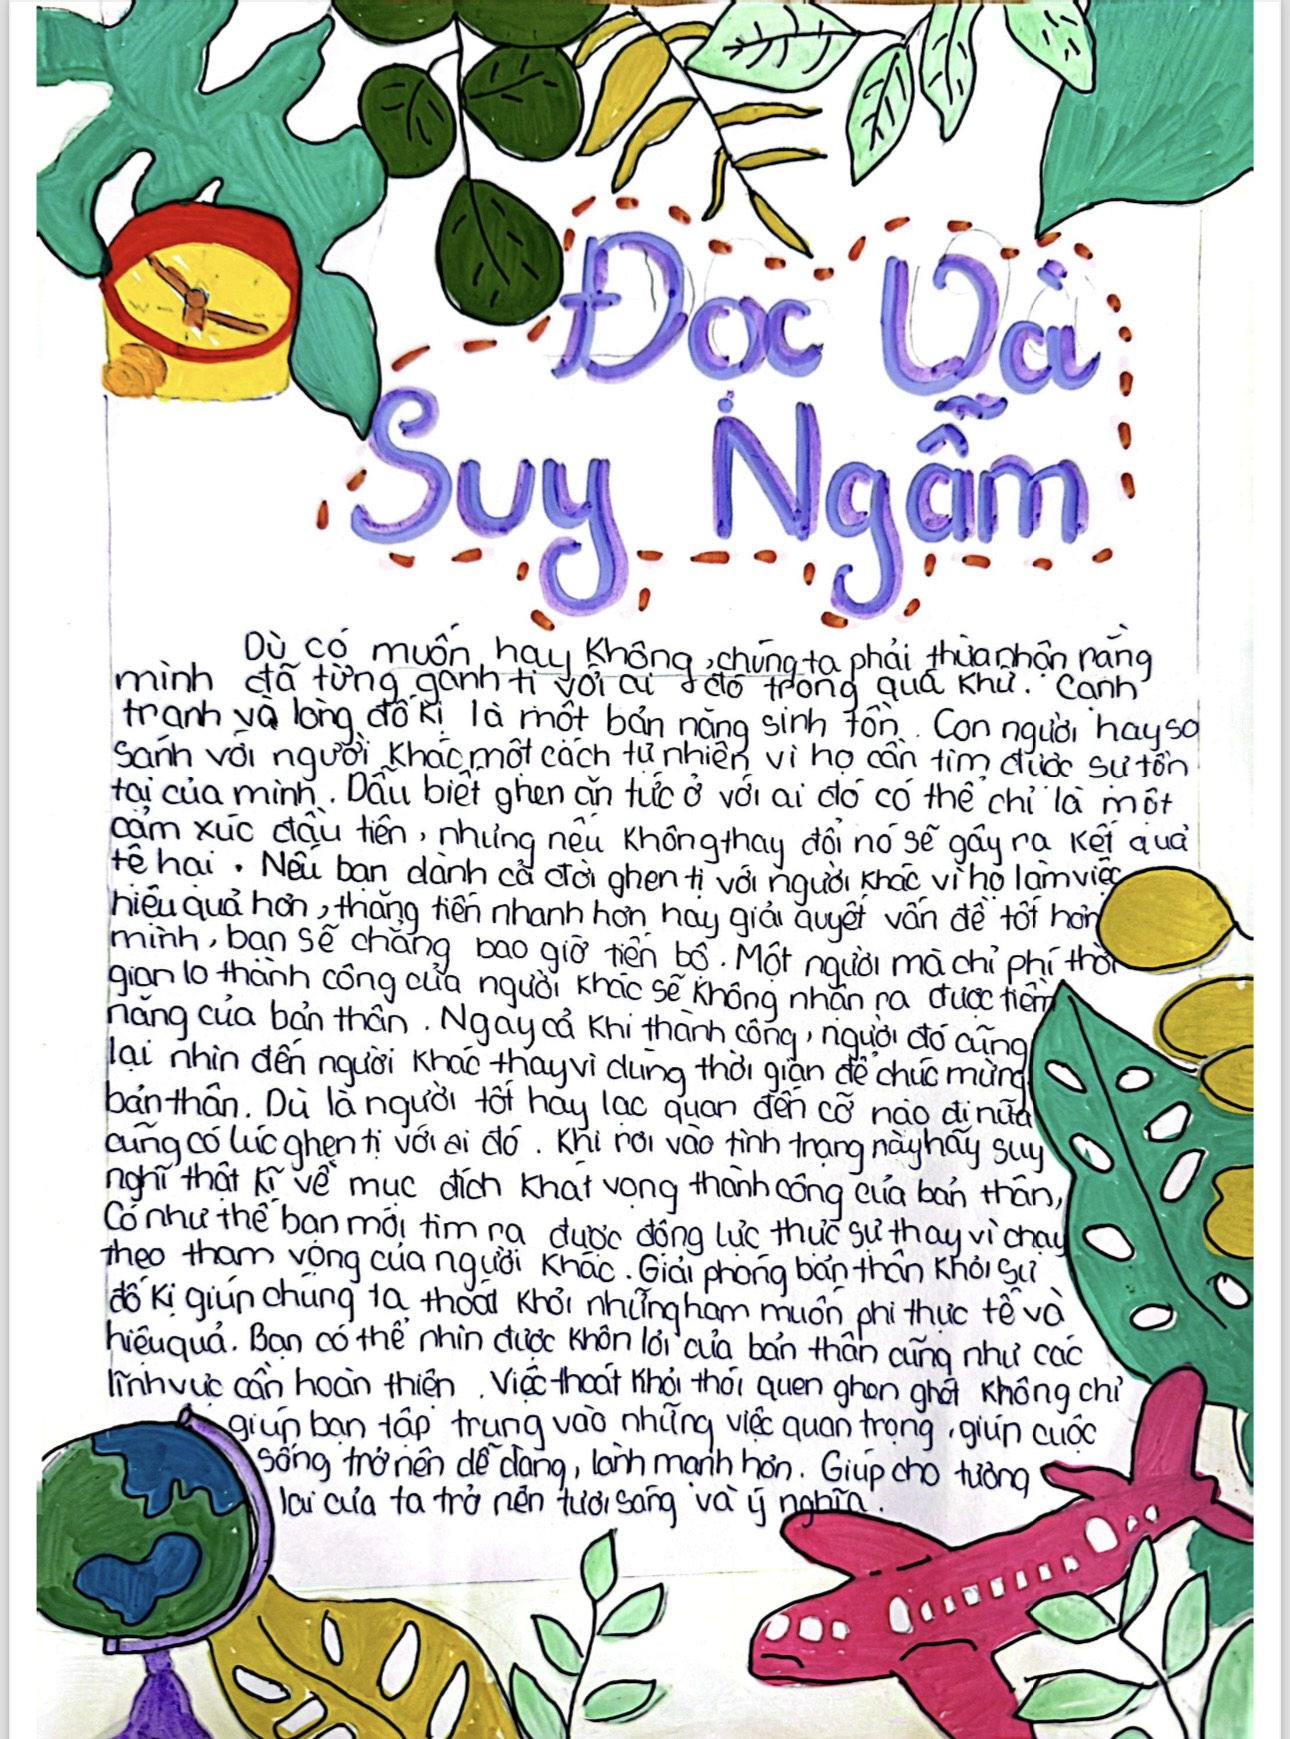 Đọc Và
Suy Ngẫm
Dù có muốn hay không, chúng ta phải thừa nhận rằng
mình đã từng ganh tị với ai đó trong quá khứ. Cạnh
tranh và lòng đố kị là một bản năng sinh tồn. Con người hay so
sánh với người khác một cách tự nhiên vì họ cần tìm được sự tồn
tại của mình. Dẫu biết ghen ăn tức ở với ai đó có thể chỉ là một
cảm xúc đầu tiên, nhưng nếu không thay đổi nó sẽ gây ra kết quả
tệ hại. Nếu bạn dành cả đời ghen tị với người khác vì họ làm việc
hiệu quả hơn, thăng tiến nhanh hơn hay giải quyết vấn đề tốt hơn
mình, bạn sẽ chẳng bao giờ tiến bộ. Một người mà chỉ phí thời
gian lo thành công của người khác sẽ không nhận ra được tiềm
năng của bản thân. Ngay cả khi thành công, người đó cũng
lại nhìn đến người khác thay vì dùng thời gian để chúc mừng
bản thân. Dù là người tốt hay lạc quan đến cỡ nào đi nữa
cũng có lúc ghen tị với ai đó. Khi rơi vào tình trạng này hãy suy
nghĩ thật kĩ về mục đích khát vọng thành công của bản thân,
Có như thế bạn mới tìm ra được động lực thực sự thay vì chạy
theo tham vọng của người khác. Giải phóng bản thân khỏi sự
đố kị giúp chúng ta thoát khỏi những ham muốn phi thực tế và
hiệu quả. Bạn có thể nhìn được khôn lỏi của bản thân cũng như các
lĩnh vực cần hoàn thiện. Việc thoát khỏi thói quen ghen ghét không chỉ
giúp bạn tập trung vào những việc quan trọng, giúp cuộc
sống trở nên dễ dàng, lành mạnh hơn. Giúp cho tương
lai của ta trở nên tươi sáng và ý nghĩa.